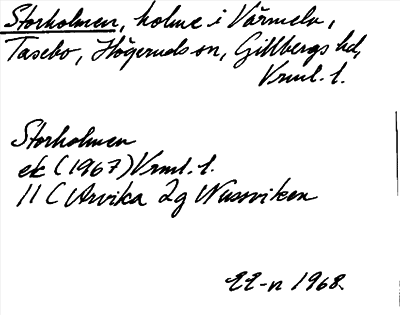 Storholmen, holme i Värmeln,
Tasebo, Högeruds sn, Gillbergs hd,
Vrml. l.
Storholmen
ek (1967) Vrml. l.
11 C Arvika 2g Nussviken
22-n 1968.